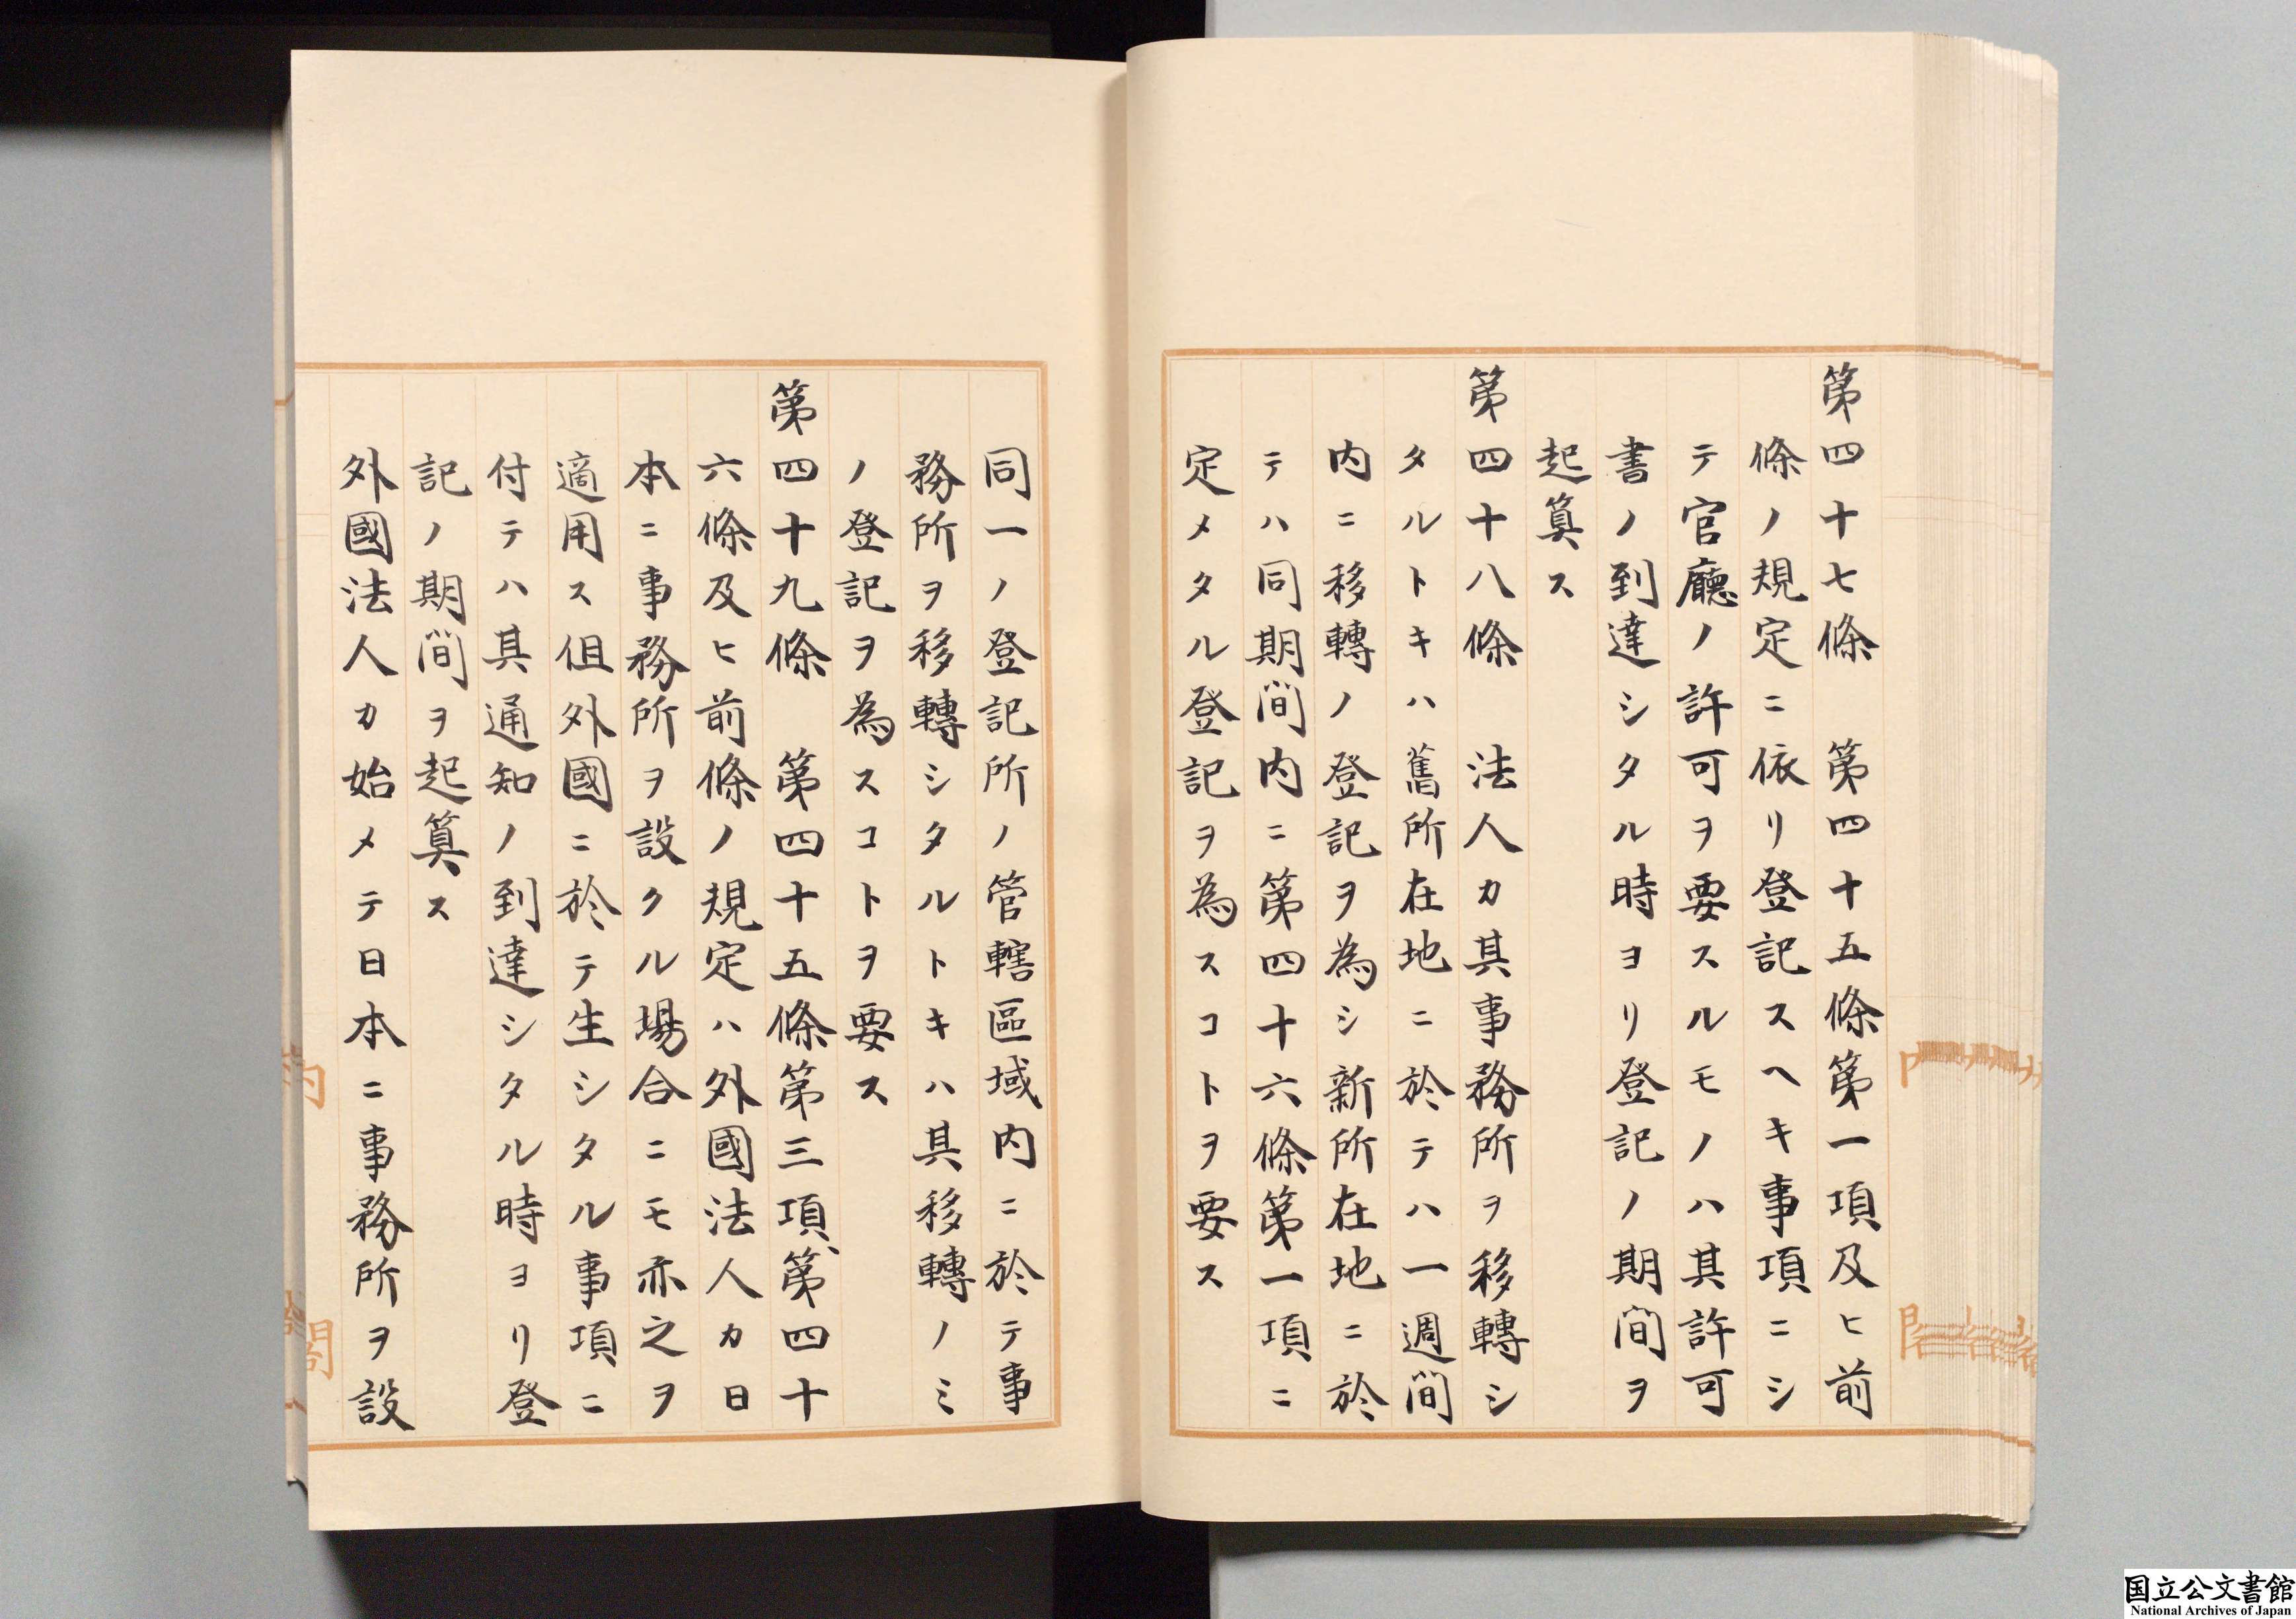 第四十七條　第四十五條第一項及ヒ前
條ノ規定ニ依リ登記スヘキ事項ニシ
テ官廳ノ許可ヲ要スルモノハ其許可
書ノ到達シタル時ヨリ登記ノ期間ヲ
起算ス
第四十八條　法人カ其事務所ヲ移轉シ
タルトキハ舊所在地ニ於テハ一週間
内ニ移轉ノ登記ヲ為シ新所在地ニ於
テハ同期間内ニ第四十六條第一項ニ
定メタル登記ヲ為スコトヲ要ス
同一ノ登記所ノ管轄區域内ニ於テ事
務所ヲ移轉シタルトキハ其移轉ノミ
ノ登記ヲ為スコトヲ要ス
第四十九條　第四十五條第三項、第四十
六條及ヒ前條ノ規定ハ外國法人カ日
本ニ事務所ヲ設クル場合ニモ亦之ヲ
適用ス但外國ニ於テ生シタル事項ニ
付テハ其通知ノ到達シタル時ヨリ登
記ノ期間ヲ起算ス
外國法人カ始メテ日本ニ事務所ヲ設
内
閣
国立公文書館
National Archives of Japan